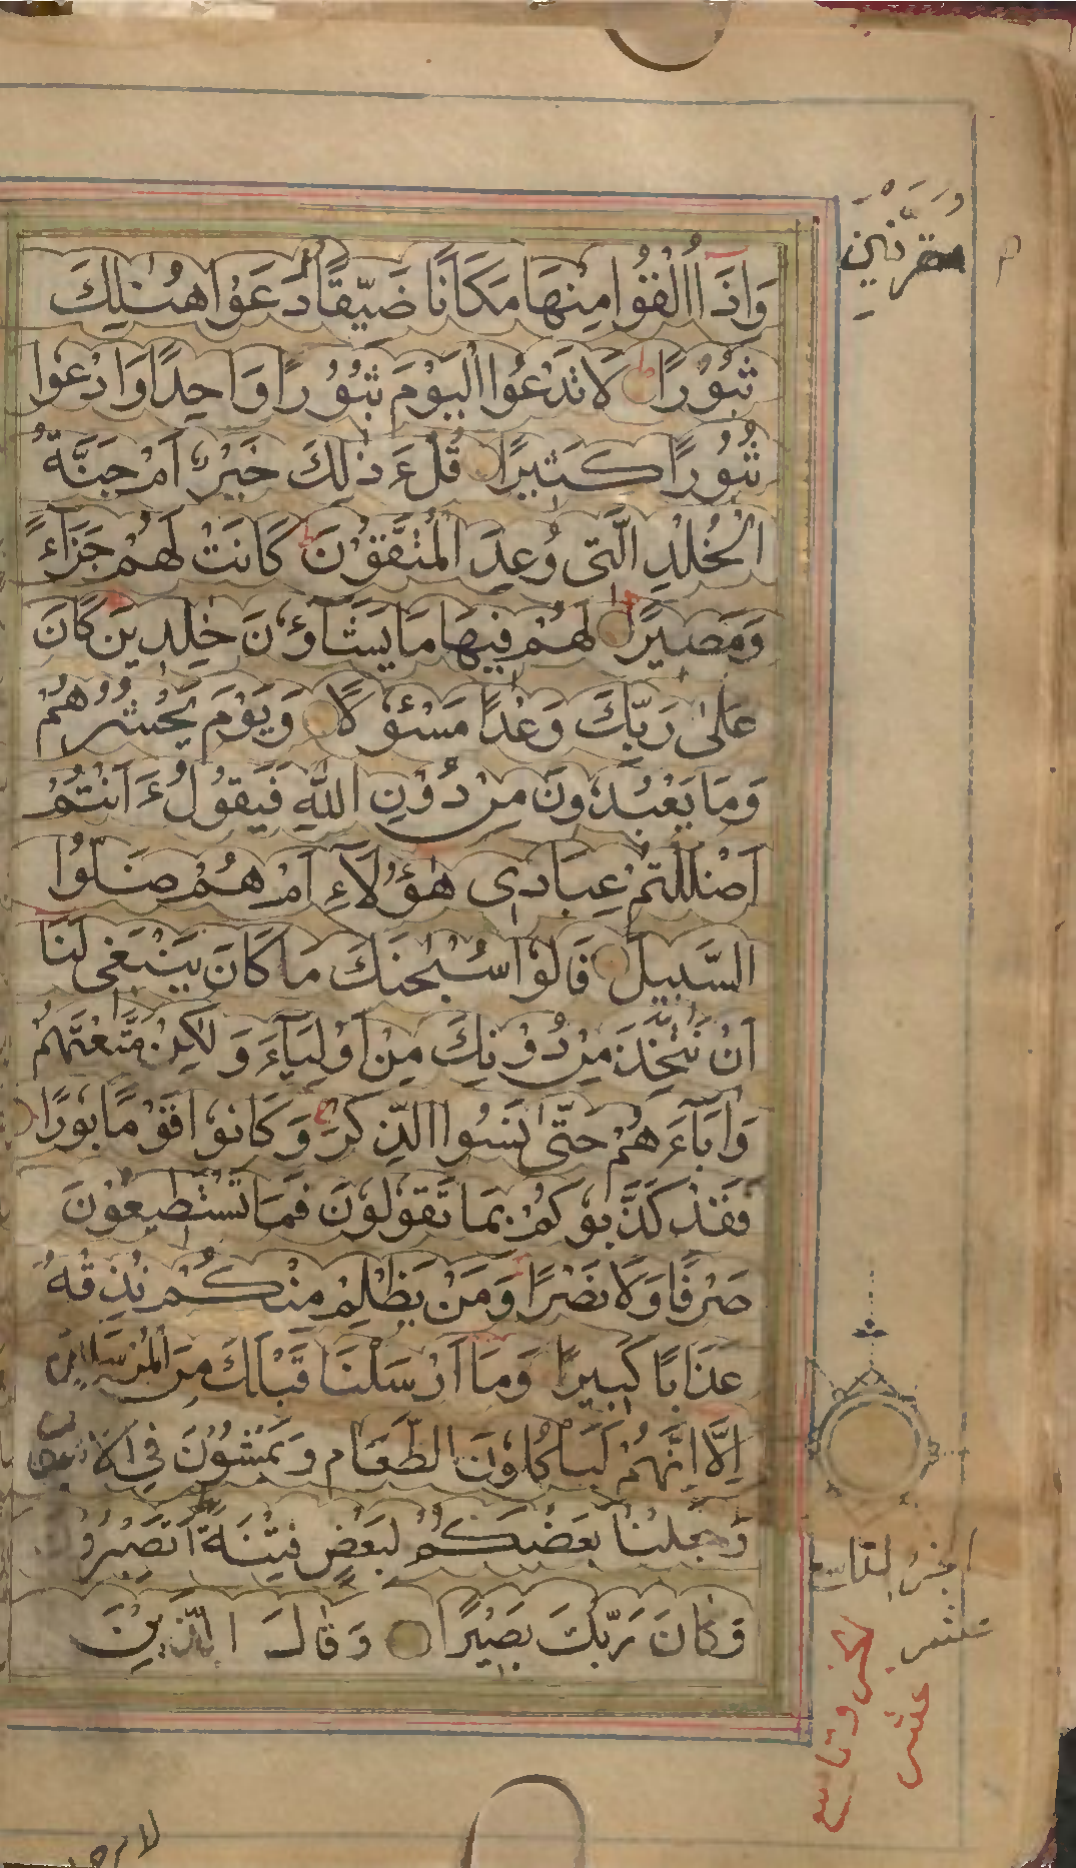 وَاِذَآ اُلْقُوْا مِنْهَا مَكَانًا ضَيِّقًا دَعَوْا هُنَالِكَ
مُقَرَّنِيْنَ
ثُبُوْرًا لَا تَدْعُوا الْيَوْمَ ثُبُوْرًا وَاحِدًا وَادْعُوا
ثُبُوْرًا كَثِيْرًا قُلْ ءَ ذٰلِكَ خَيْرٌ اَمْ جَنَّةُ
الْخُلْدِ الَّتِى وُعِدَ الْمُتَّقُوْنَ كَانَتْ لَهُمْ جَزَآءً
وَمَصِيْرًا لَهُمْ فِيْهَا مَا يَشَآؤُنَ خٰلِدِيْنَ كَانَ
عَلٰى رَبِّكَ وَعْدًا مَسْئُوْلًا وَيَوْمَ يَحْشُرُهُمْ
وَمَا يَعْبُدُوْنَ مِنْ دُوْنِ اللّٰهِ فَيَقُوْلُ ءَاَنْتُمْ
اَضْلَلْتُمْ عِبَادِى هٰؤُلَآءِ اَمْ هُمْ ضَلُّوا
السَّبِيْلَ قَالُوْا سُبْحٰنَكَ مَا كَانَ يَنْبَغِى لَنَا
اَنْ نَتَّخِذَ مِنْ دُوْنِكَ مِنْ اَوْلِيَآءَ وَلٰكِنْ مَتَّعْتَهُمْ
وَاٰبَآءَهُمْ حَتّٰى نَسُوا الذِّكْرَ وَكَانُوْا قَوْمًا بُوْرًا
فَقَدْ كَذَّبُوْكُمْ بِمَا تَقُوْلُوْنَ فَمَا تَسْتَطِيْعُوْنَ
صَرْفًا وَلَا نَصْرًا وَمَنْ يَظْلِمْ مِنْكُمْ نُذِقْهُ
عَذَابًا كَبِيْرًا وَمَآ اَرْسَلْنَا قَبْلَكَ مِنَ الْمُرْسَلِيْنَ
اِلَّآ اِنَّهُمْ لَيَاْكُلُوْنَ الطَّعَامَ وَيَمْشُوْنَ فِى الْاَ
وَجَعَلْنَا بَعْضَكُمْ لِبَعْضٍ فِتْنَةً اَتَصْبِرُوْنَ
وَكَانَ رَبُّكَ بَصِيْرًا وَقَالَ الَّذِيْنَ
الجزء التاسع
عشر
الجزو تاسع
عشر